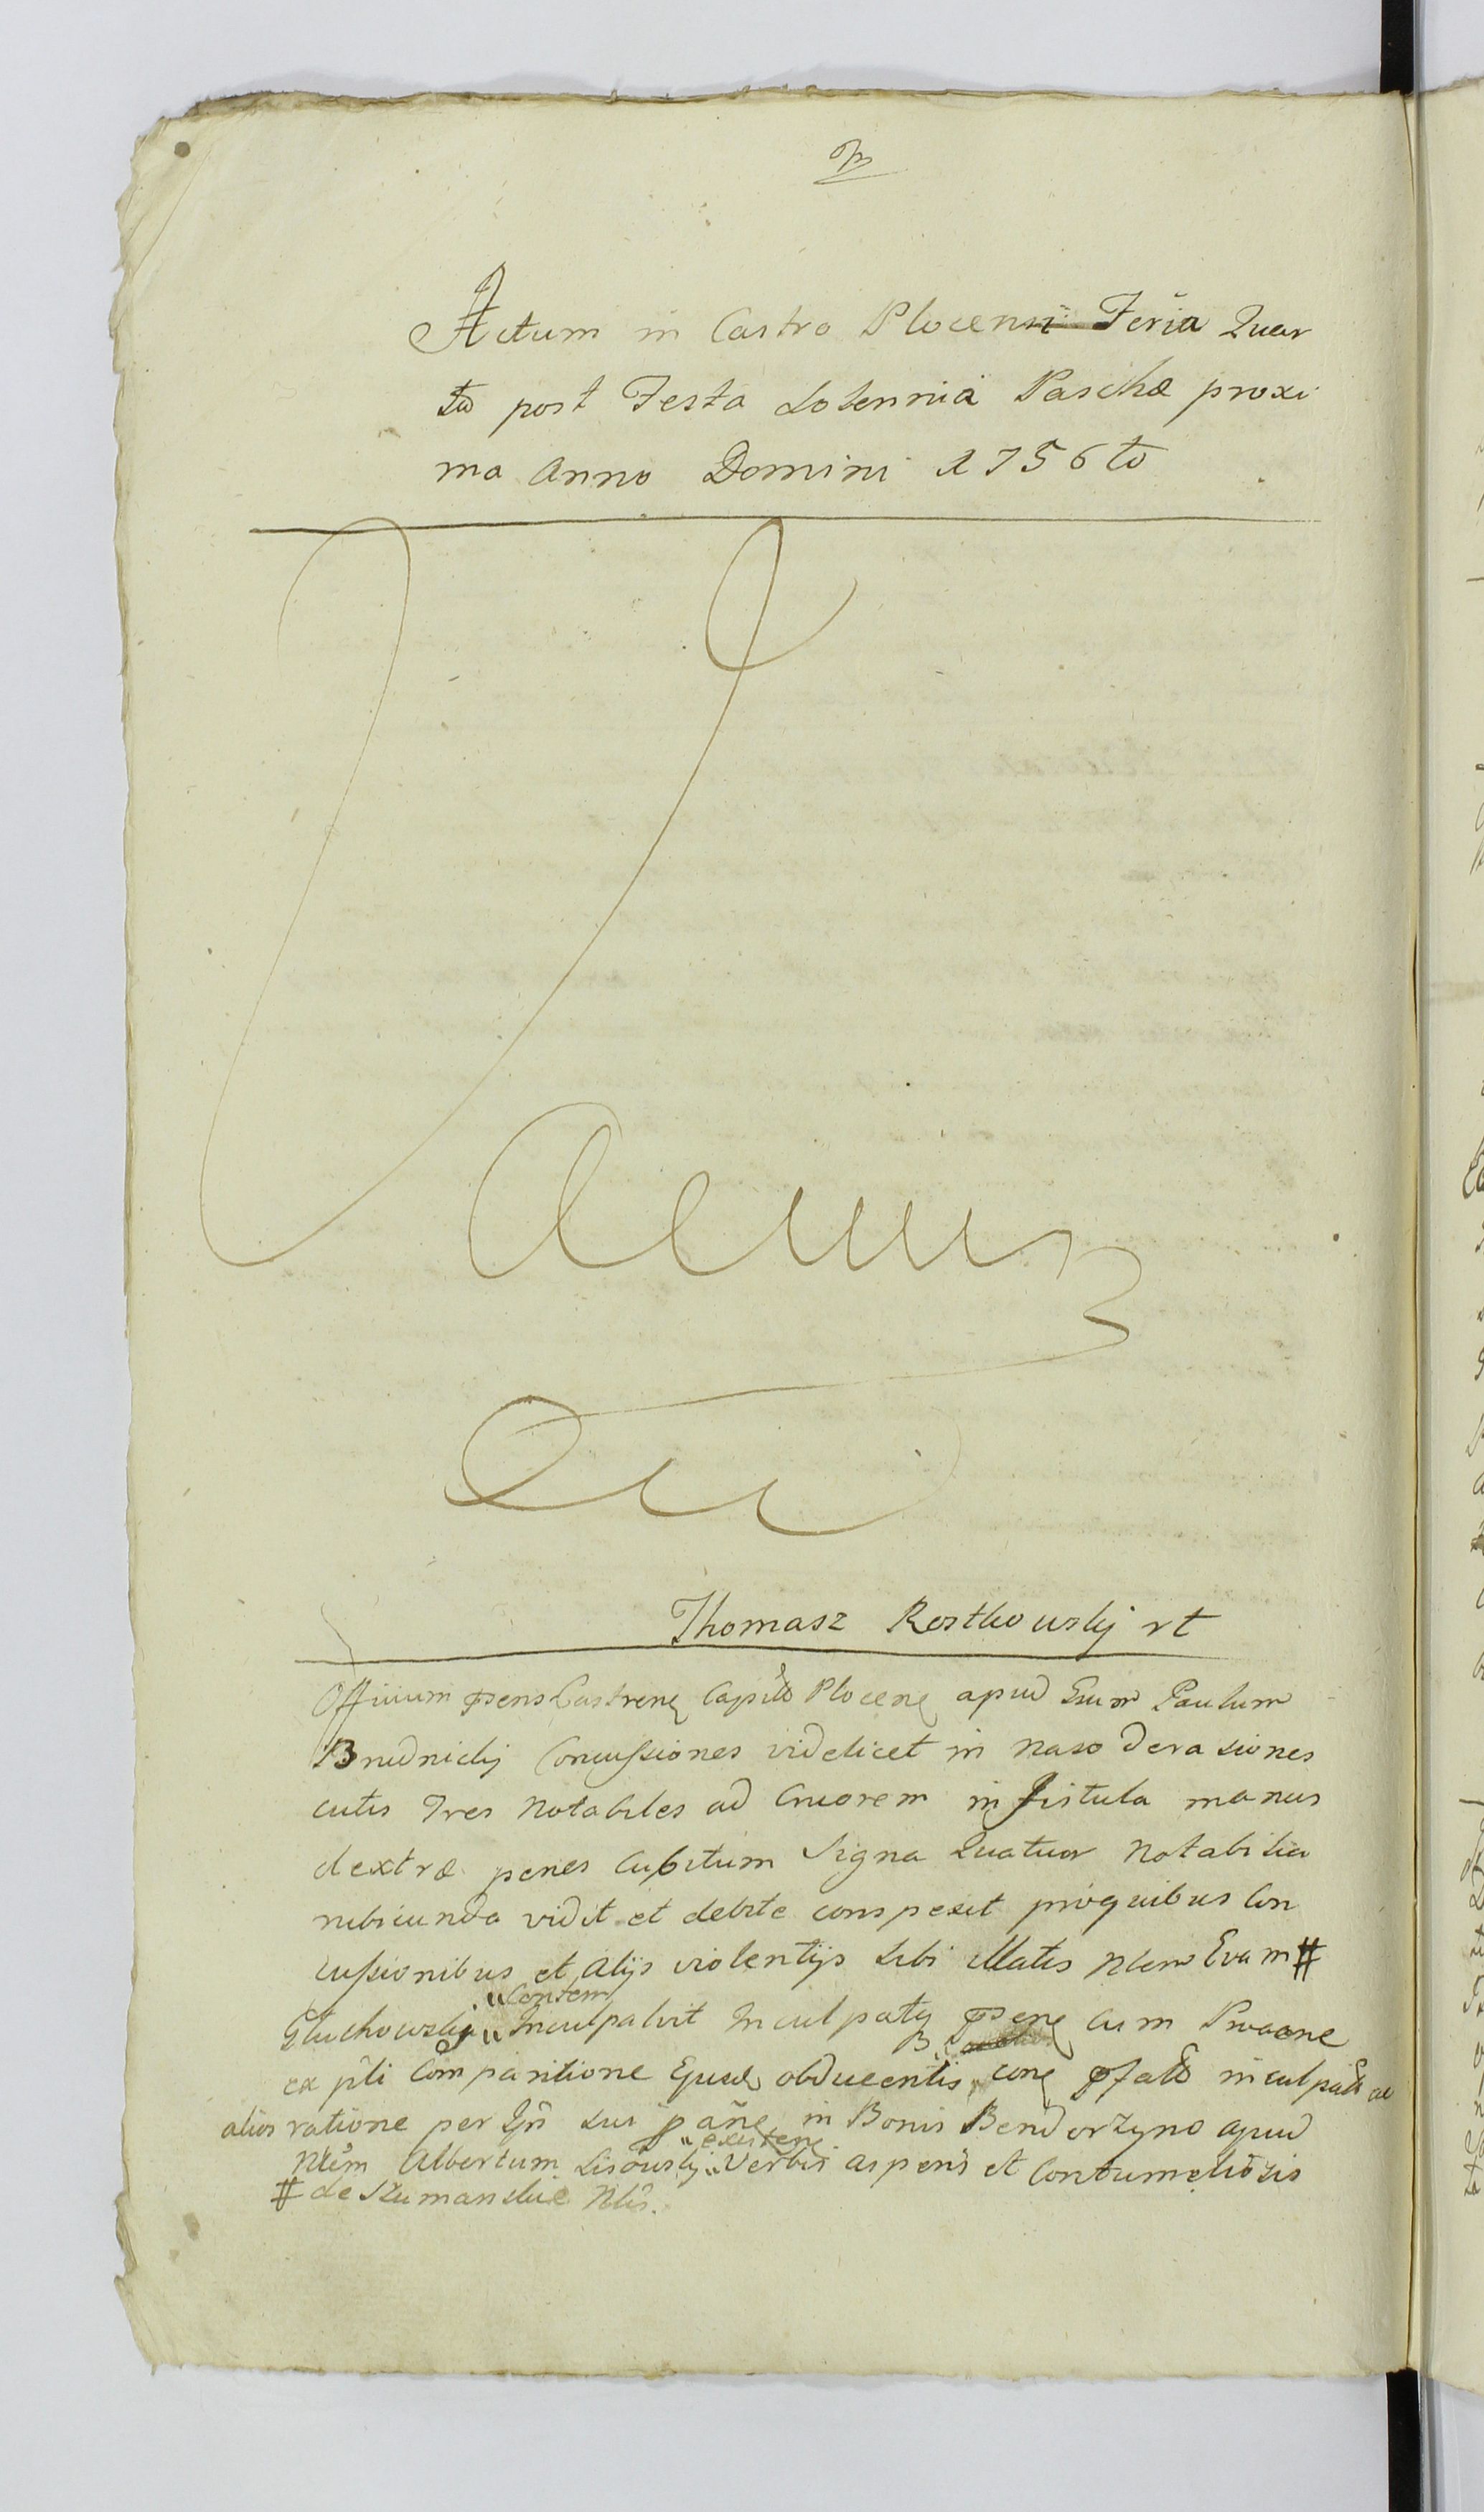 Actum in Castro Plocensi Feria Quar
ta post Festa Solennia Paschæ proxi
ma Anno Domini 1756to
Thomasz Rostkowskj rt
Officium pñs Castrenę Capitło Plocenę apud Gnum Paulum
Brudnickj Concussiones videlicet in naso derasiones
cutis Tres notabiles ad Cruorem in fistula manus
dextræ penes Cubitum Signa Quatuor notabilia
rubicunda vidit et debite conspexit pro quibus Con
cussionibus et alijs violentijs sibi illatis Nlem Evam #
Głuchowskj „ „Contem Inculpavit Inculpatę Pñę cum Proaone
ex pñti Comparitione Ejusd obducentis conę pfato inculpato ac
alios ratione per Ipñ sui in Bonis Bendorzyno apud
Nlem Albertum Lisowskj „ „existenę Verbis asperis et Contumeliosis
# de Szumanskie Nlis.